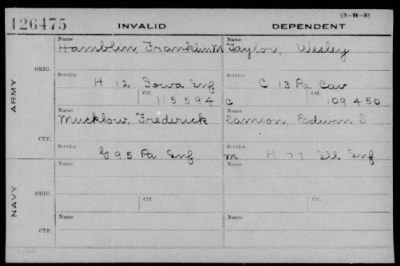 126475 INVALID DEPENDENT (3-H-3)
Name Name
Hamblin, Franklin M Taylor, Wesley
ARMY
ORIG.
Service Service
H 12 Iowa Inf C 13 Pa Cav
Ctf. Ctf.
115594 c 109450
Name Name
Mucklow, Frederick Edwin S
CTF.
Service Service
G 95 Pa Inf m H 77 Ill Inf
NAVY
ORIG.
Name Ctf. Name Ctf.
CTF.
Name Name